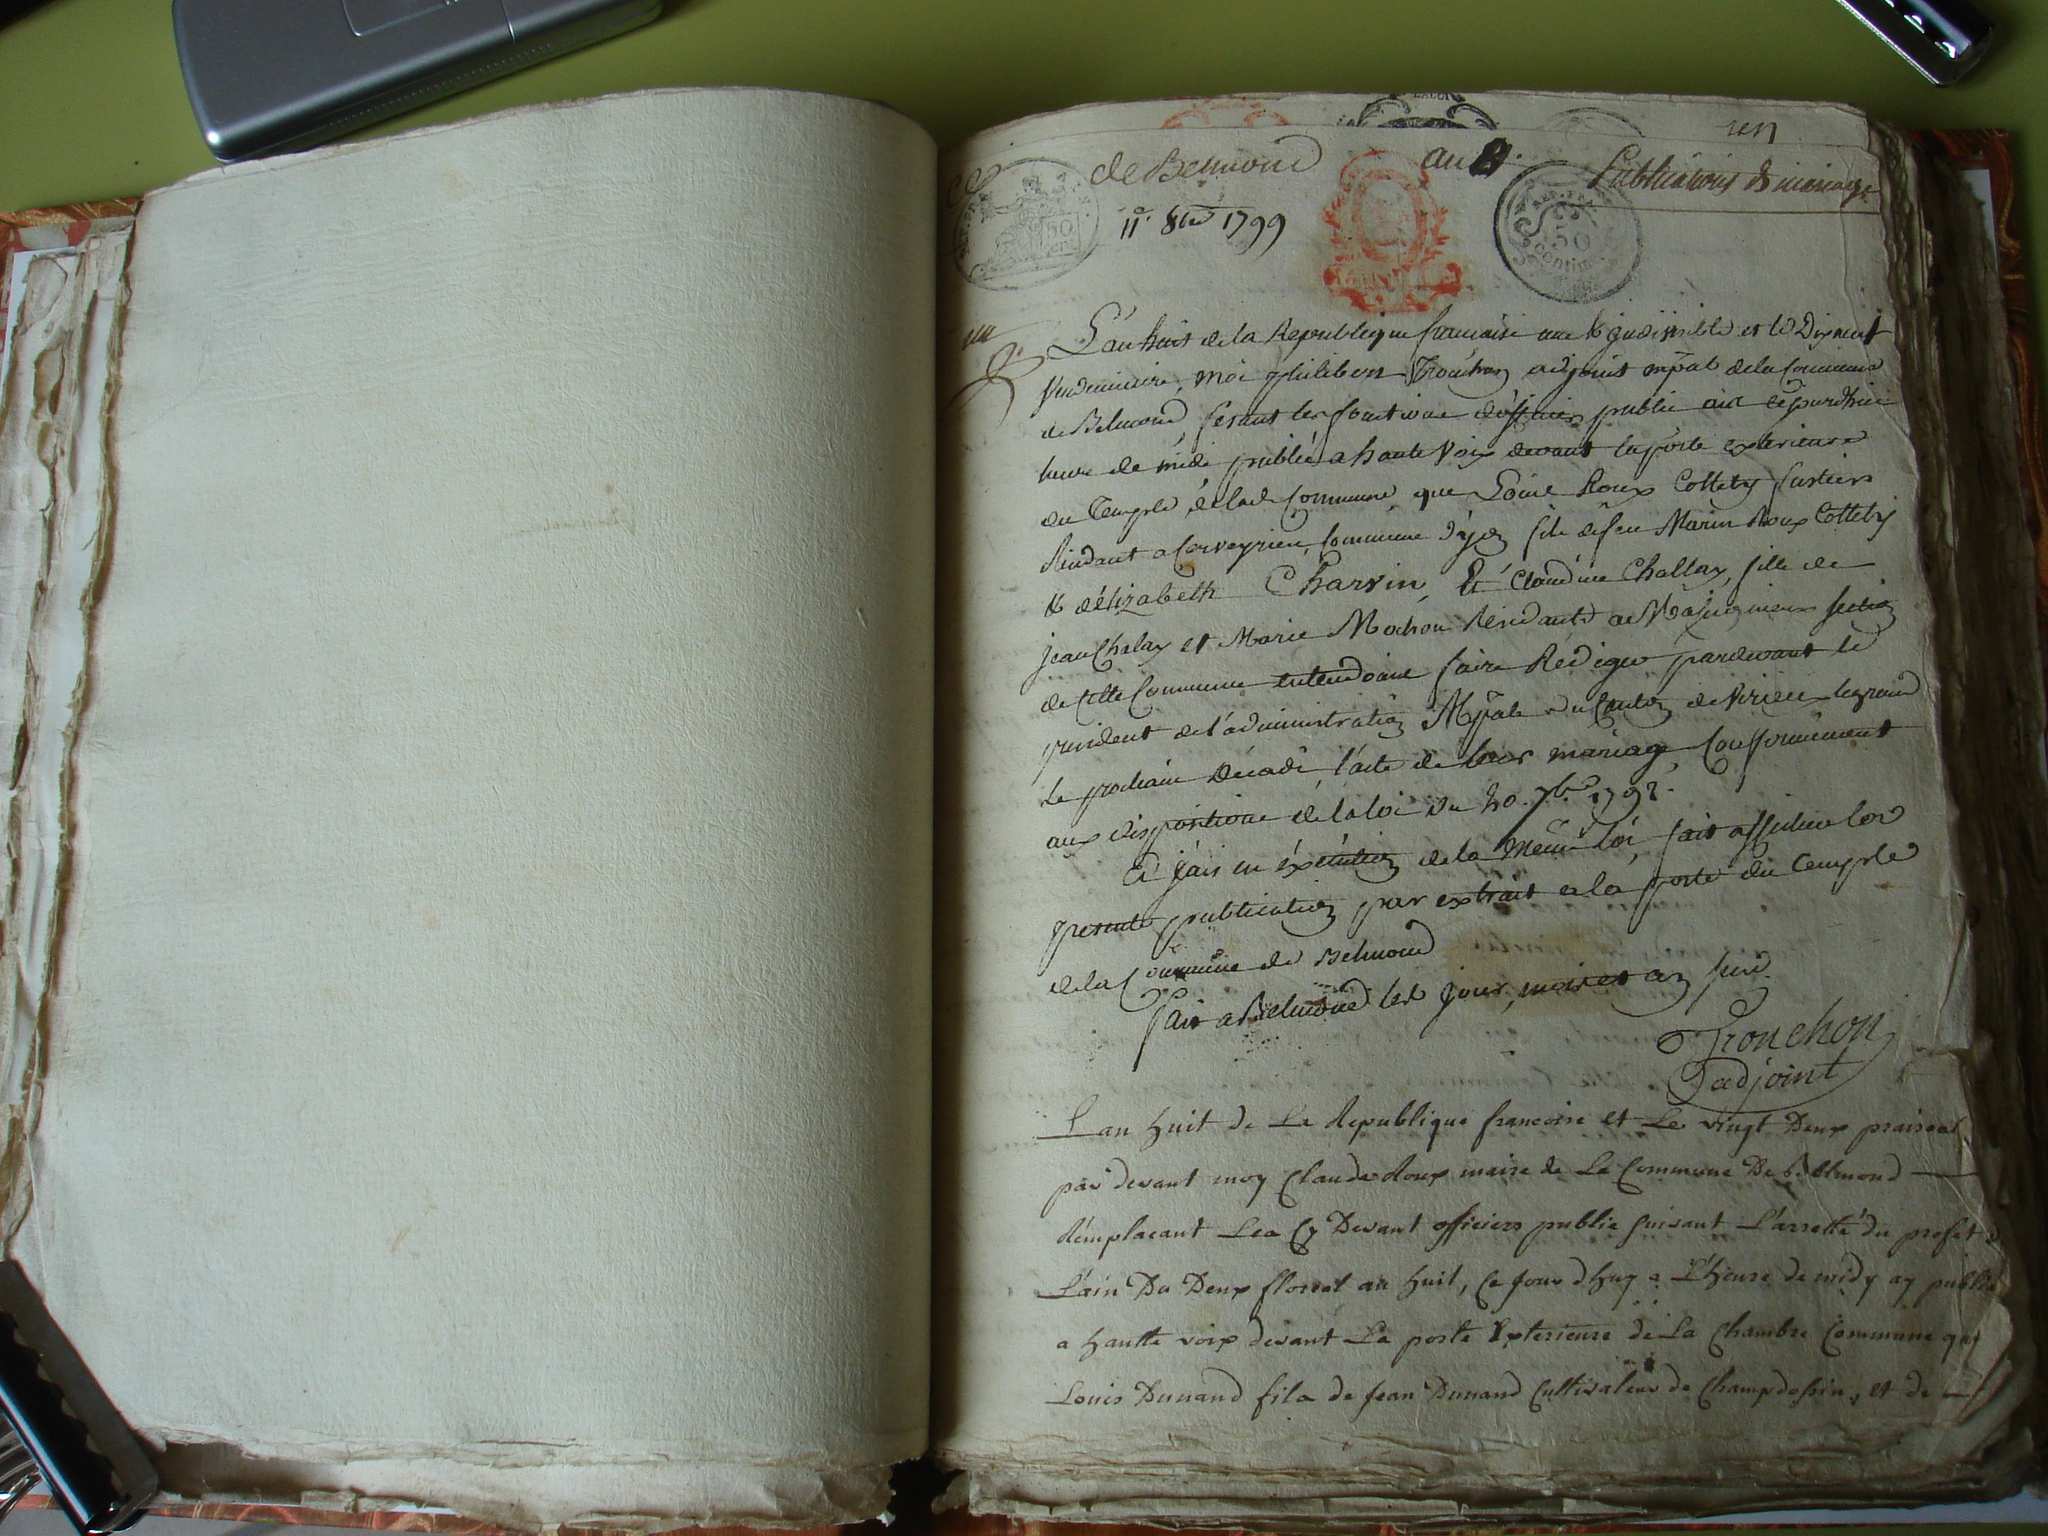 un
de Belmond an 8. Publications de mariage
11e 8bre 1799
50 Centim
un
L'an huit de la Republique francaise une & jndivisible et le Dixneuf
Vendemiaire, moi philibert Tronchon adjoint mpal de la Commune
de Belmond fesant les fonctions d'officier public ai cejourdhui
heure de midi publié a haute Voix devant la porte exterieure
du Temple de lad. Commune, que Louis Roux Collety
Résidant a Cerveyrieu Commune d' fils de feu Marin Roux Collety
& d'élizabeth Charvin, Et Claudine Challay, fille de
jean Chalay et Marie Mochon Résidante a section
de cette Commune entendoient faire Rédiger pardevant le
president de l'administration Mpale du Canton de Virieu legrand
Le prochain décadi, l'acte de leur mariage, Conformément
aux dispositions de la loi du 20. 7bre 1792.
Et j'ais en éxécution de la Même loi, fait afficher la
presente publication par extrait a la porte du Temple
de la Commune de Belmond
fait a Belmond les jour, mois et an susd.
Tronchon
adjoint
L'an huit de La Republique francoise et Le vingt Deux prairial
par devant moy Claude Roux maire de La Commune De Belmond
Remplacant Les Cy Devant officiers public suivant L'arretté du prefet d
L'ain Du Deux floreal an huit, Ce jour dhuy a L'heure de midy ay publié
a hautte voix devant La porte Exterieure de La Chambre Commune que
Louis Dunand fils de Jean Dunand Cultivateur de Champdossin, et de